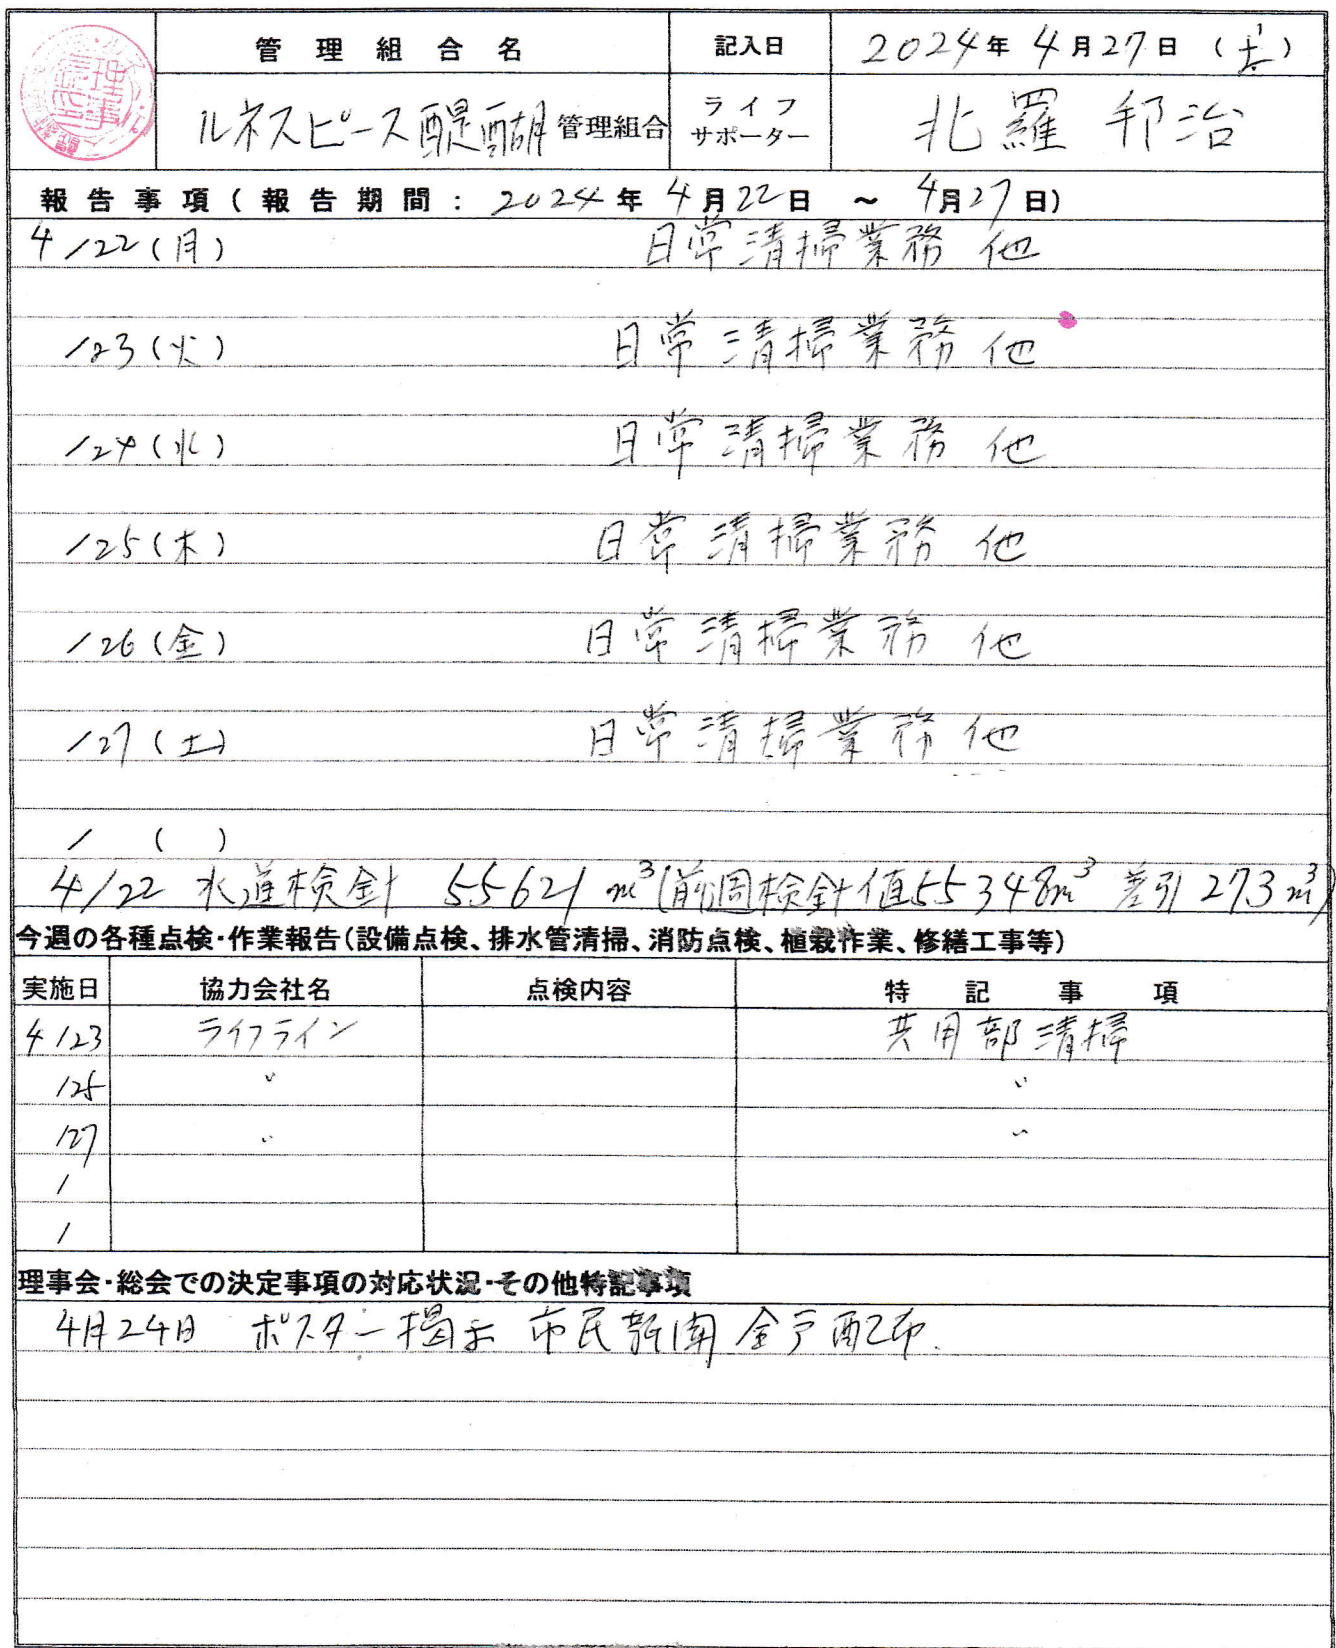 管理組合名 記入日 2024年 4月27日 (土)
ルネスピース醍醐管理組合 ライフサポーター 北羅 邦治
報告事項(報告期間: 2024年 4月22日 ~ 4月27日)
4/22(月) 日常清掃業務 他
/23(火) 日常清掃業務 他
/24(水) 日常清掃業務 他
/25(木) 日常清掃業務 他
/26(金) 日常清掃業務 他
/27(土) 日常清掃業務 他
/ ( )
4/22 水道検針 55621㎥(前週検針値55348㎥ 差引273㎥)
今週の各種点検・作業報告(設備点検、排水管清掃、消防点検、植栽作業、修繕工事等)
実施日 協力会社名 点検内容 特記事項
4/23 ライフライン 共用部清掃
/25 〃 〃
/27 〃 〃
/
/
理事会・総会での決定事項の対応状況・その他特記事項
4月24日 ポスター掲示 市民新聞 全戸配布.